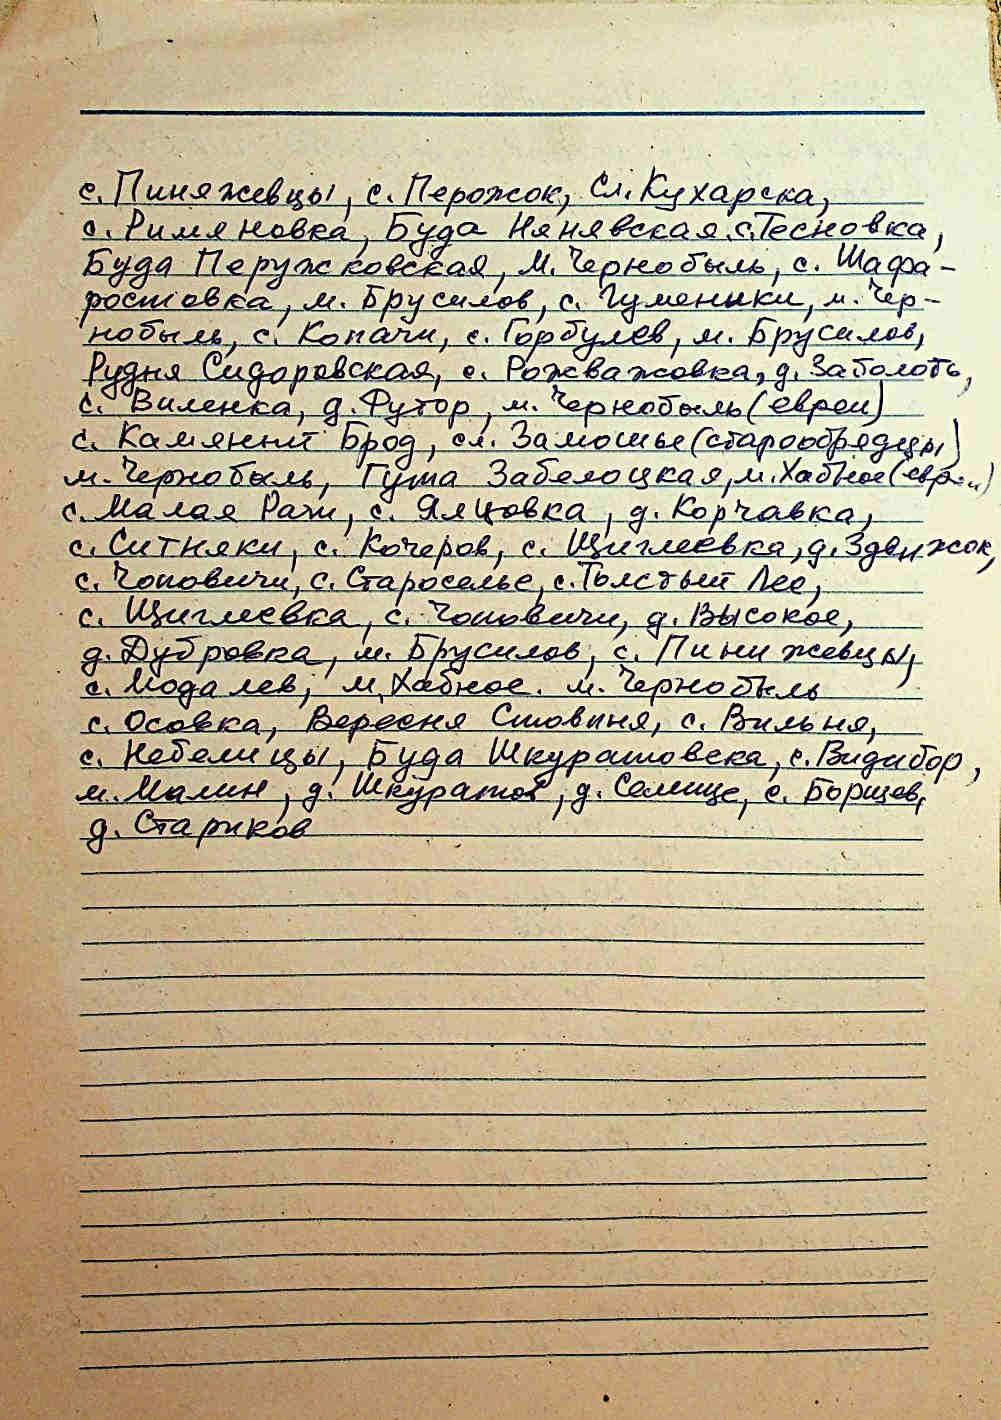 с. Пиняжевцы, с. Перожок, Сл. Кухарска,
с. Римяновка, Буда Нянявская, с. Тесновка,
Буда Перужковская, М. Чернобыль, с. Шафа-
ростовка, м. Брусилов, с. Гуменники, м. Чер-
нобыль, с. Копачи, с. Горбулев, м. Брусилов,
Рудня Сидоровская, с. Рожважовка, д. Заболоть,
с. Виленка, д. Футор, м. Чернобыль (евреи)
с. Камянный Брод, сл. Замошье (старообрядцы)
м. Чернобыль, Гута Забелоцкая, м. Хабное (евреи)
с. Малая Рачи, с. Ялцовка, д. Корчавка,
с. Ситняки, с. Кочеров, с. Щиглеевка, д. Здвижок,
с. Чоповичи, с. Староселье, с. Толстый Лес,
с. Щиглеевка, с. Чоповичи, д. Высокое,
д. Дубровка, м. Брусилов, с. Пинижевцы,
с. Модалев, м. Хабное. м. Чернобыль
с. Осовка, Вересня Стовпня, с. Вильня,
с. Небелицы, Буда Шкуратовска, с. Видибор,
м. Малин, д. Шкуратов, д. Селище, с. Борщев,
д. Стариков